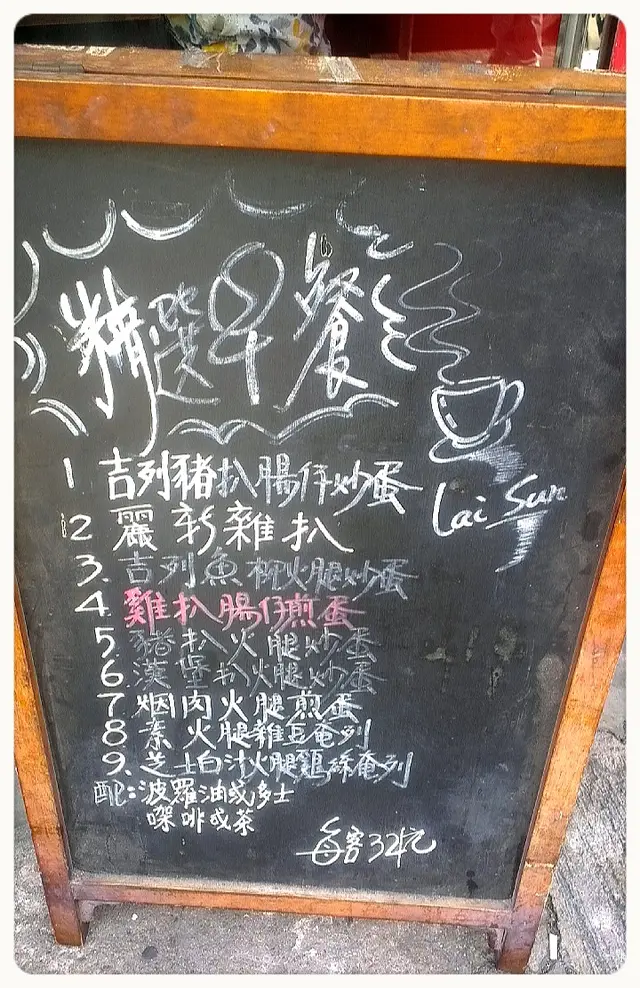 精選早餐
Lai Sun
1 吉列豬扒腸仔炒蛋
2 麗新雜扒
3. 吉列魚柳火腿炒蛋
4. 雞扒腸仔煎蛋
5. 豬扒火腿炒蛋
6. 漢堡扒火腿炒蛋
7 烟肉火腿煎蛋
8. 素火腿雜豆奄列
9. 芝士白汁火腿雞絲奄列
配:波羅油或多士
㗎啡或茶
每客32亢